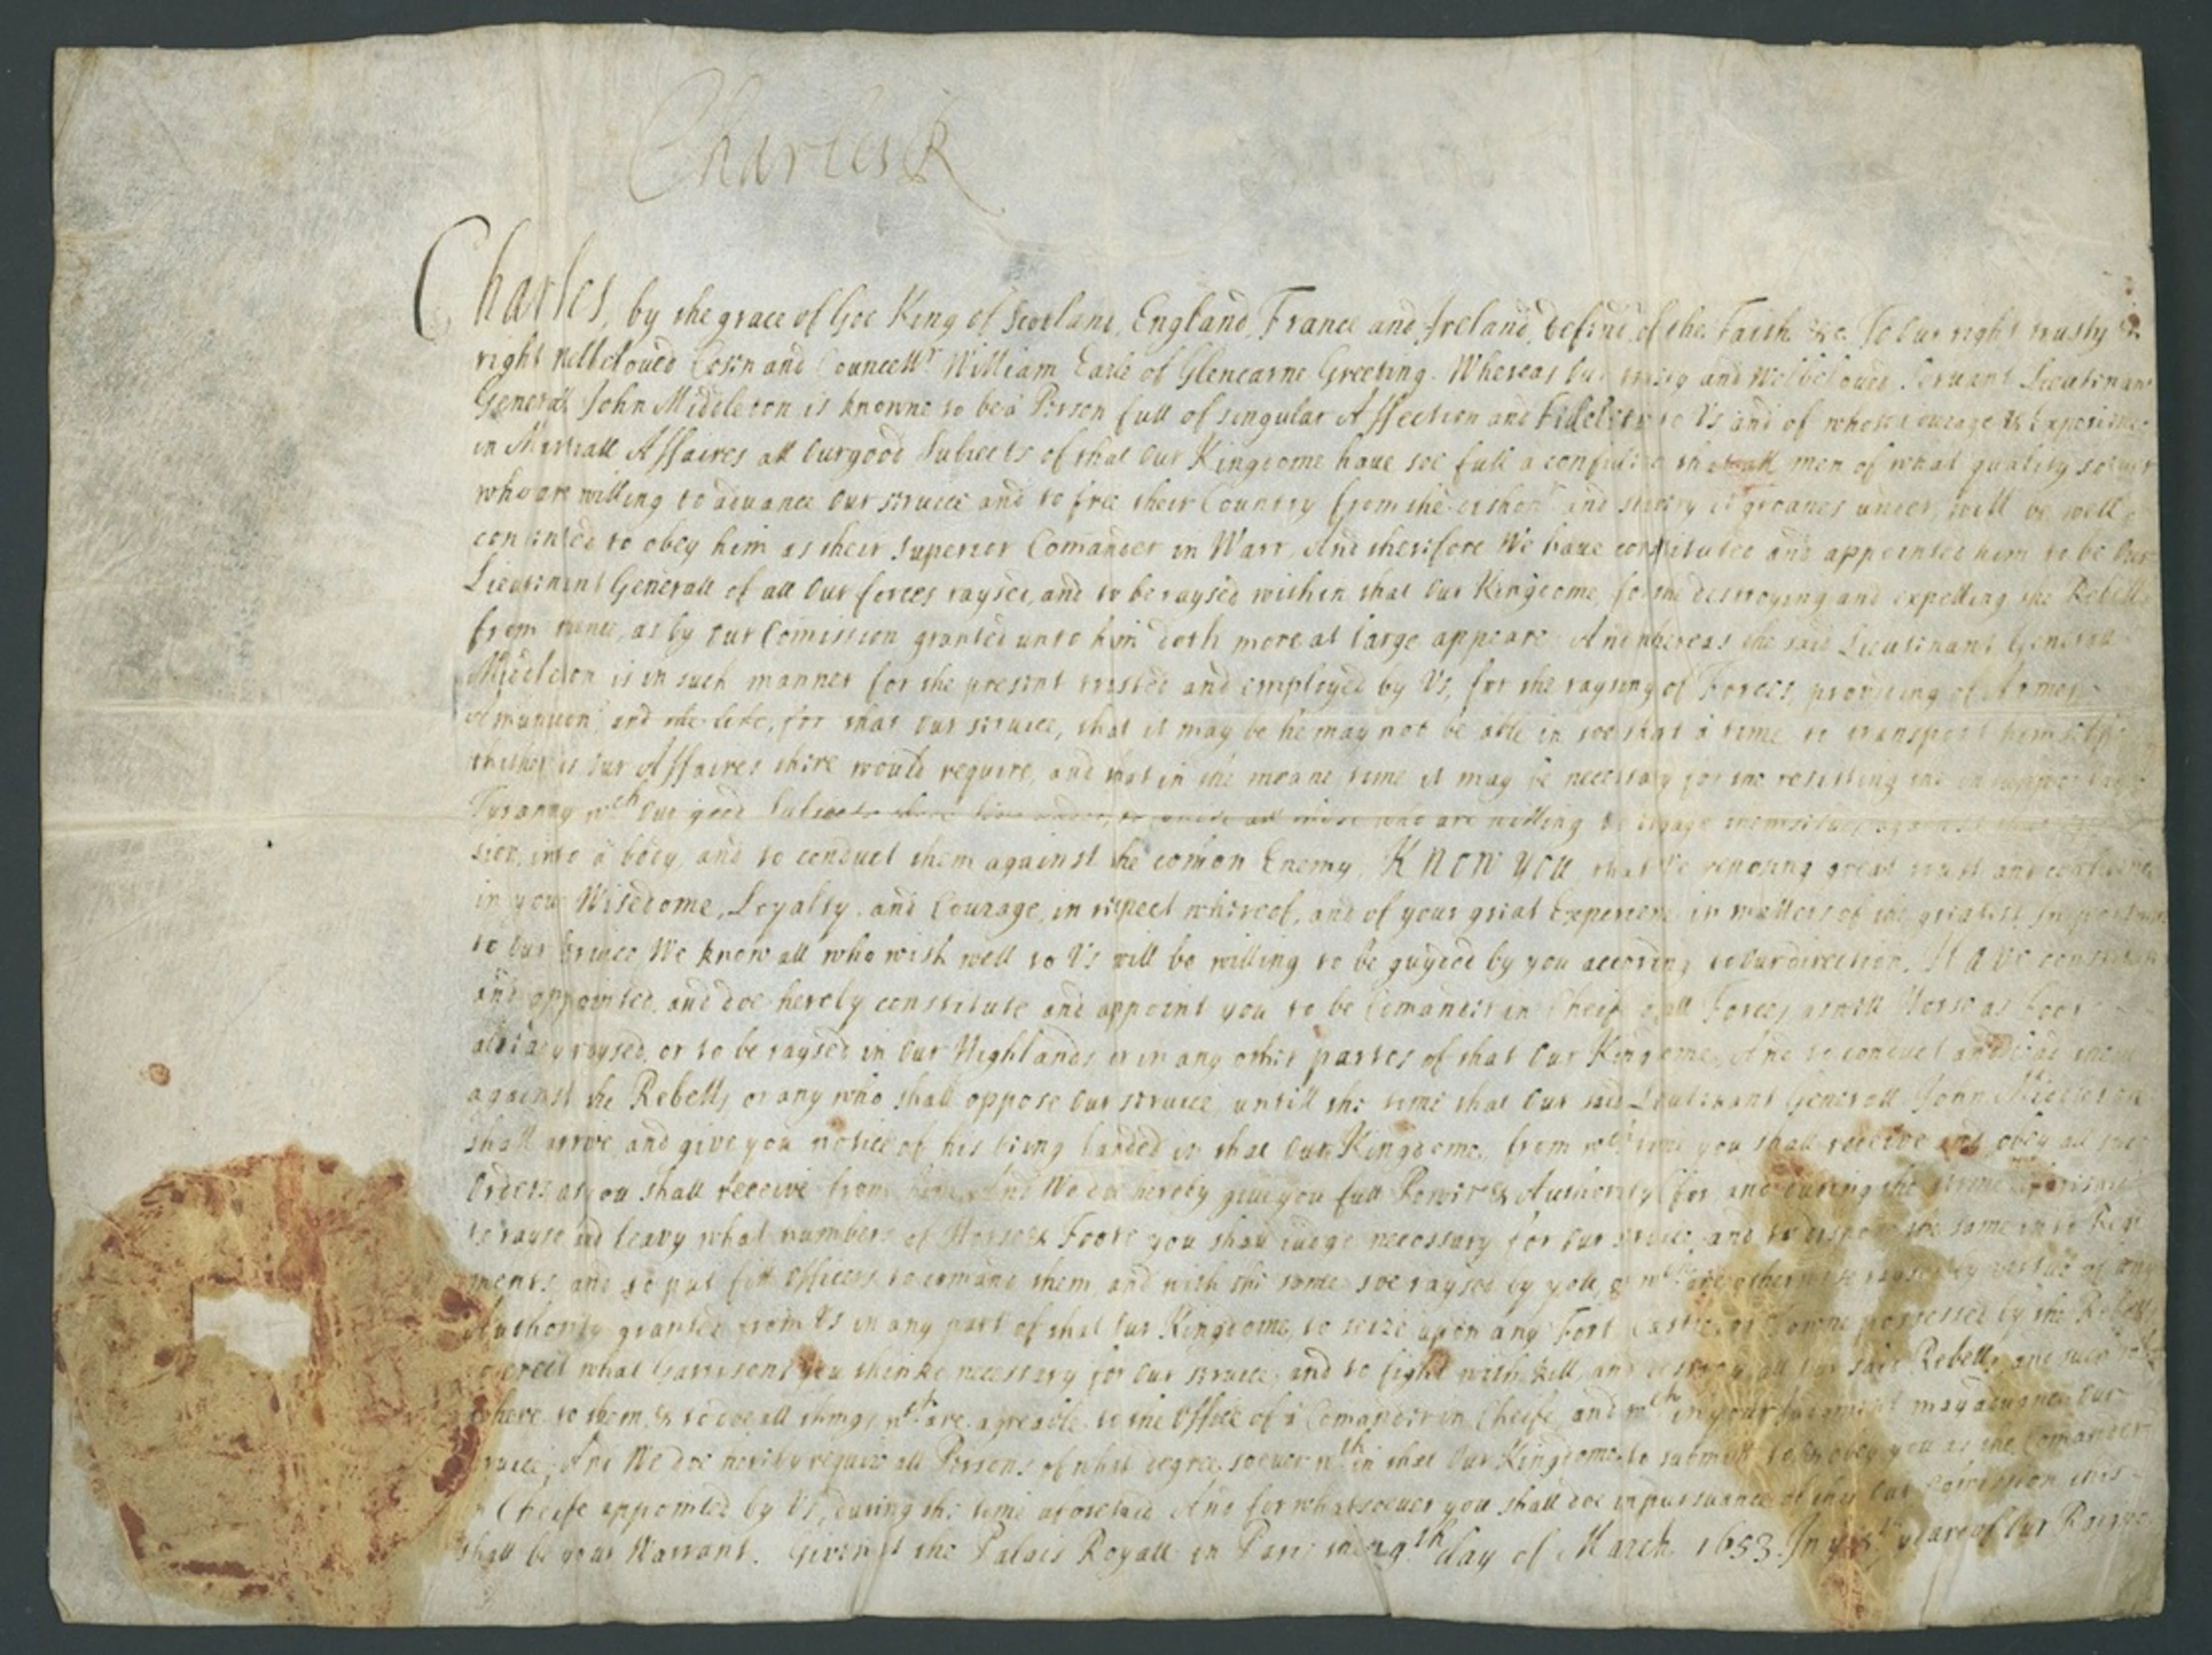 Charles R
Charles, by the grace of God King of Scotland, England, France and Ireland, defend. of the Faith &c. To Our right trusty &
right welbeloued Cosin and Councellr William Earle of Glencarne Greeting. Whereas Our trusty and Welbeloued Seruant Lieutenant
Generall John Middleton is knowne to be a Person full of singular Affection and Fidelity to Us, and of whose courage & Experience
in Martiall Affaires all Our good Subiects of that Our Kingdome haue soe full a confidence that all men of what quality soeuer
who are willing to aduance Our seruice and to free their Country from the and misery it groanes under, will be well
contented to obey him as their Superior Comander in Warr. And therefore We haue constituted and appointed him to be Our
Lieutenant Generall of all Our forces raysed, and to be raysed within that Our Kingdome, for the destroying and expelling the Rebells
from thence, as by Our Comission granted unto him doth more at large appeare. And whereas the said Lieutenant Generall
Middleton is in such manner for the present trusted and employed by Us, for the raysing of Forces, prouiding of Armes,
Amunition and the like, for that Our seruice, that it may be he may not be able in soe short a time to transport himselfe
thither as Our Affaires there would require, and that in the meane time it may be necessary for the resisting the
Tyranny wch Our good Subiects there liue under, to unite all those who are willing to engage themselues against that
sion, into a body, and to conduct them against the comon Enemy, KNOW YOU that We reposing great trust and confidence
in your Wisedome, Loyalty, and Courage, in respect whereof, and of your great Experience in matters of the greatest Importance
to Our seruice We know all who wish well to Us will be willing to be guyded by you according to Our direction, HAVE constituted
and appointed, and doe hereby constitute and appoint you to be Comander in Cheife of all Forces, aswell Horse as Foot
already raysed, or to be raysed in Our Highlands, or in any other partes of that Our Kingdome, And to conduct and lead them
against the Rebells, or any who shall oppose Our seruice, untill the time that Our said Lieutenant Generall John Middleton
shall arriue and giue you notice of his being landed in that Our Kingdome, from wch time you shall receiue and obey all such
Orders as you shall receive from him. And We doe hereby giue you full Power & Authority (for and during the time aforesaid)
to rayse and leavy what numbers of Horse & Foote you shall iudge necessary for Our seruice, and to dispose the same into Regi
ments, and to put fitt Officers to comand them, and with the same soe raysed by you, & wch are otherwise raysed by vertue of any
Authority granted from Us in any part of that Our Kingdome, to seize upon any Fort, Castle, or Towne possessed by the Rebells
to erect what Garrisons you thinke necessary for Our seruice, and to fight with, kill, and destroy all Our said Rebells, and such as
adhere to them, & to doe all things wch are agreable to the Office of a Comander in Cheife, and wch in your Iudgment may aduance Our
seruice, And We doe hereby require all Persons of what degree soeuer wth in that Our Kingdome, to submitt to & obey you as the Comander
in Cheife appointed by Us, during the time aforesaid And for whatsoeuer you shall doe in pursuance of this Our Comission this
shall be your Warrant. Given at the Palais Royall in Paris the 29th day of March 1653. In ye 5th yeare of Our Raigne.